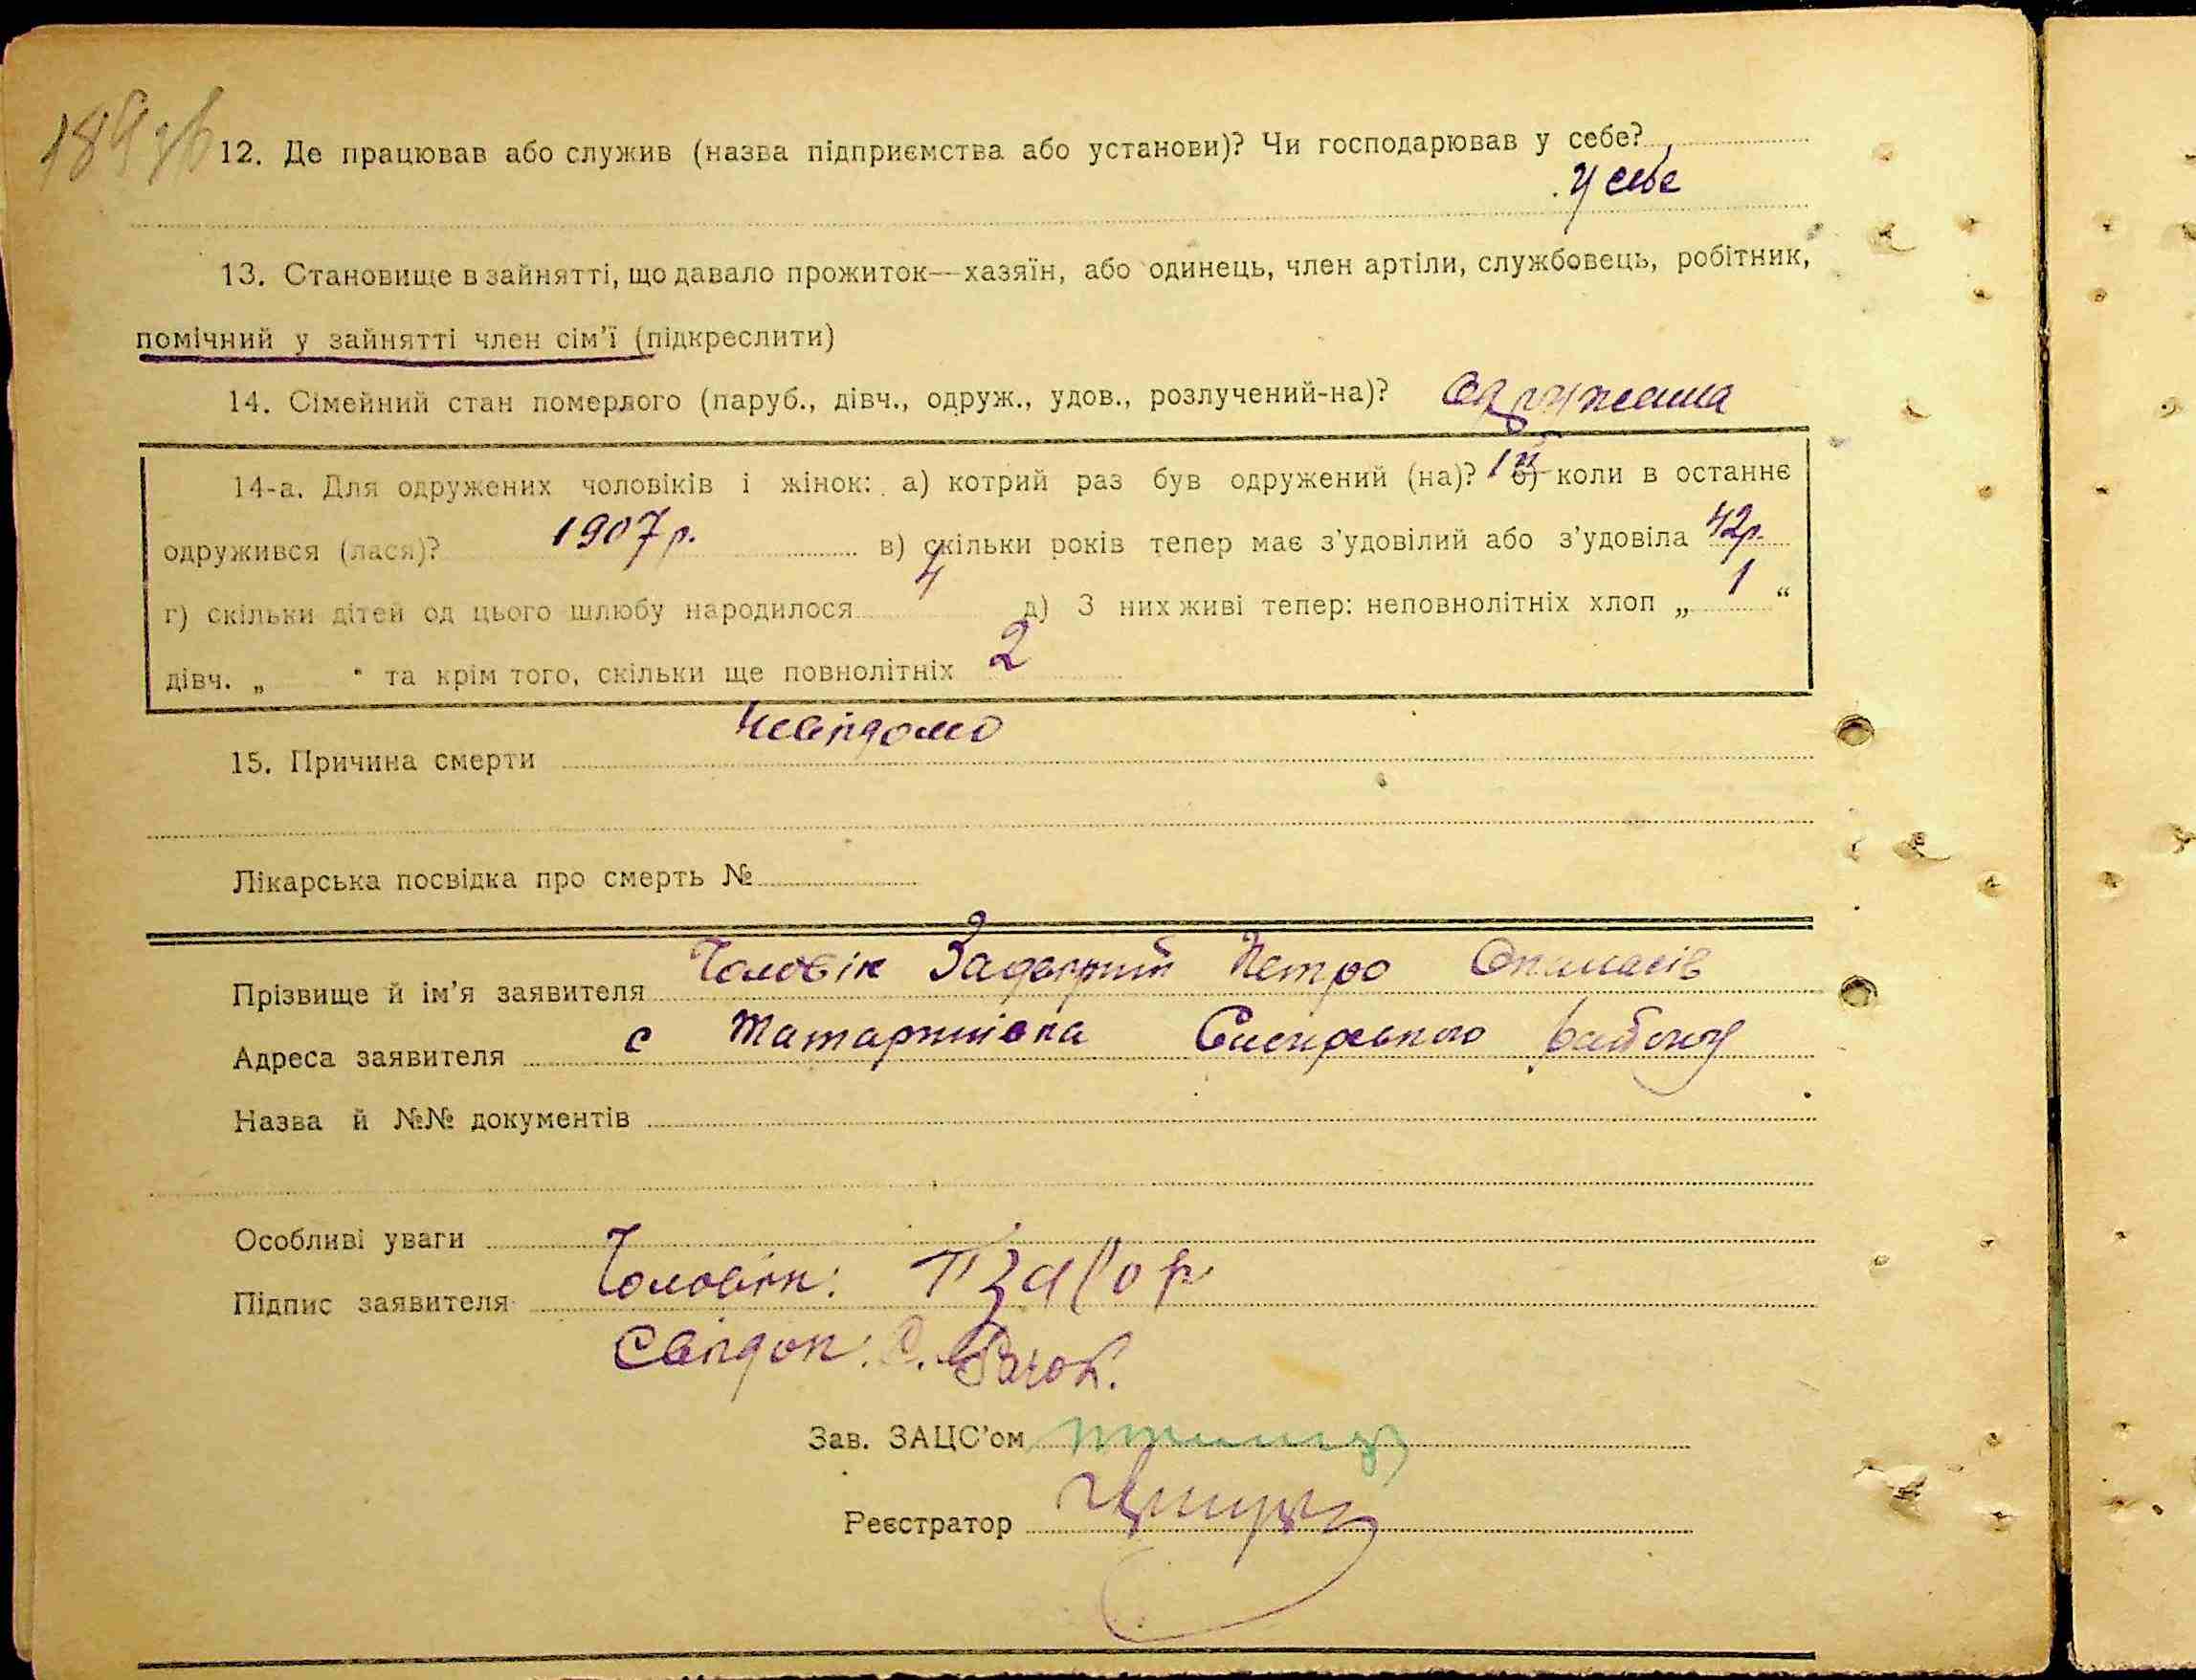 189 зв
12. Де працював або служив (назва підприємства або установи)? Чи господарював у себе?
у себе
13. Становище в зайнятті, що давало прожиток—хазяїн, або одинець, член артіли, службовець, робітник,
помічний у зайнятті член сім'ї (підкреслити)
14. Сімейний стан померлого (паруб., дівч., одруж., удов., розлучений-на)? одружена
14-а. Для одружених чоловіків і жінок: а) котрий раз був одружений (на)? 1й б) коли в останнє
одружився (лася)? 1907 р. в) скільки років тепер має з'удовілий або з'удовіла 42 р.
г) скільки дітей од цього шлюбу народилося 4 д) З них живі тепер: неповнолітніх хлоп „ 1 “
дівч. „ “ та крім того, скільки ще повнолітніх 2
15. Причина смерти невідомо
Лікарська посвідка про смерть №
Прізвище й ім'я заявителя Чоловік Петро
Адреса заявителя с району
Назва й №№ документів
Особливі уваги
Підпис заявителя Чоловік:
Свідок:
Зав. ЗАЦС'ом
Реєстратор